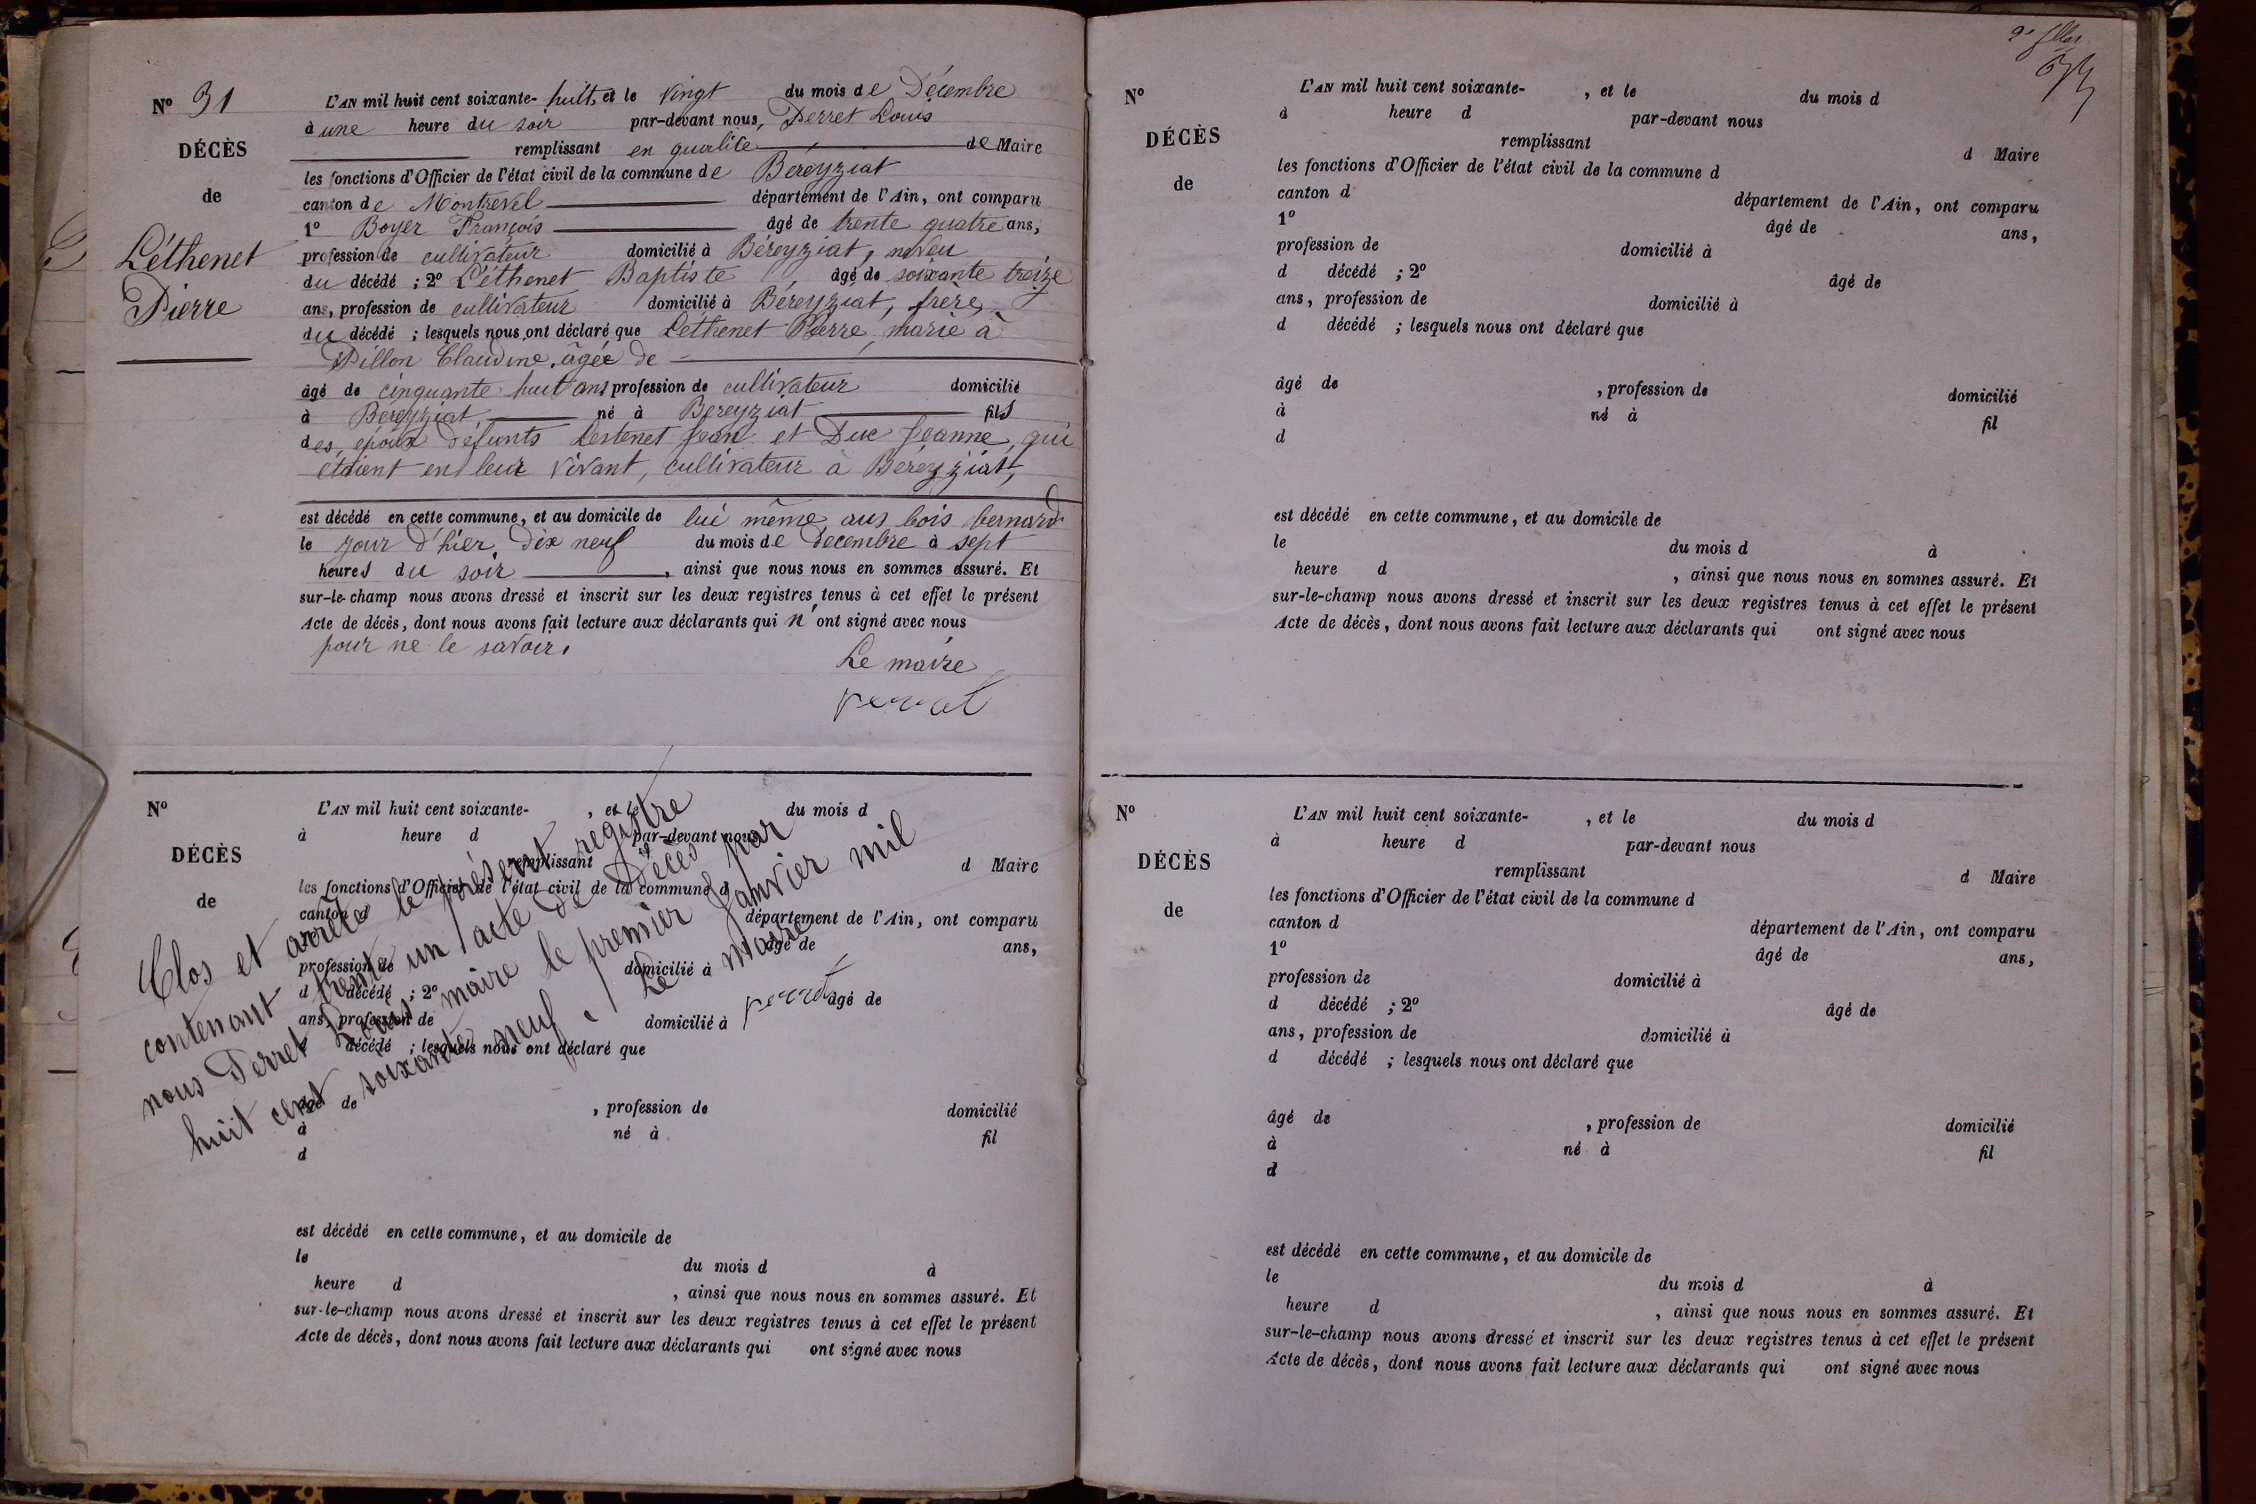 N° 31
DÉCÈS
de
Léthenet
Pierre
L'AN mil huit cent soixante- huit, et le vingt du mois de Décembre
à une heure du soir par-devant nous, Perret Louis
remplissant en qualité de Maire
les fonctions d'Officier de l'état civil de la commune de Béreyziat
canton de Montrevel département de l'Ain, ont comparu
1° Boyer François âgé de trente quatre ans,
profession de cultivateur domicilié à Béreyziat, neveu
du décédé ; 2° Léthenet Baptiste âgé de soixante treize
ans, profession de cultivateur domicilié à Béreyziat, frère,
du décédé ; lesquels nous ont déclaré que Léthenet Pierre, marié à
Pillon Claudine, âgée de
âgé de cinquante huit ans profession de cultivateur domicilié
à Béreyziat, né à Béreyziat fils
des époux défunts Lestenet Jean et Duc Jeanne, qui
étaient en leur vivant, cultivateur à Béreyziat,
est décédé en cette commune, et au domicile de lui même, aus bois bernard
le jour d'hier, dix neuf du mois de décembre à sept
heures du soir, ainsi que nous nous en sommes assuré. Et
sur-le-champ nous avons dressé et inscrit sur les deux registres tenus à cet effet le présent
Acte de décès, dont nous avons fait lecture aux déclarants qui n'ont signé avec nous
pour ne le savoir.
Le maire
perret
N°
DÉCÈS
de
L'AN mil huit cent soixante- , et le du mois d
à heure d par-devant nous
remplissant d Maire
les fonctions d'Officier de l'état civil de la commune d
canton d département de l'Ain, ont comparu
âgé de ans,
profession de domicilié à
d décédé ; 2° âgé de
ans, profession de domicilié à
décédé ; lesquels nous ont déclaré que
âgé de , profession de domicilié
à né à fil
d
est décédé en cette commune, et au domicile de
le du mois d à
heure d , ainsi que nous nous en sommes assuré. Et
sur-le-champ nous avons dressé et inscrit sur les deux registres tenus à cet effet le présent
Acte de décès, dont nous avons fait lecture aux déclarants qui ont signé avec nous
Clos et arrêté le présent registre
contenant trente un acte de Décès par
nous Perret Louis maire le premier Janvier mil
huit cent soixante neuf.
Le maire
perret
N°
DÉCÈS
de
L'AN mil huit cent soixante- , et le du mois d
à heure d par-devant nous
remplissant d Maire
les fonctions d'Officier de l'état civil de la commune d
canton d département de l'Ain, ont comparu
1° âgé de ans,
profession de domicilié à
d décédé ; 2° âgé de
ans, profession de domicilié à
d décédé ; lesquels nous ont déclaré que
âgé de , profession de domicilié
à né à fil
d
est décédé en cette commune, et au domicile de
le du mois d à
heure d , ainsi que nous nous en sommes assuré. Et
sur-le-champ nous avons dressé et inscrit sur les deux registres tenus à cet effet le présent
Acte de décès, dont nous avons fait lecture aux déclarants qui ont signé avec nous
N°
DÉCÈS
de
L'AN mil huit cent soixante- , et le du mois d
à heure d par-devant nous
remplissant d Maire
les fonctions d'Officier de l'état civil de la commune d
canton d département de l'Ain, ont comparu
1° âgé de ans,
profession de domicilié à
d décédé ; 2° âgé de
ans, profession de domicilié à
d décédé ; lesquels nous ont déclaré que
âgé de , profession de domicilié
à né à fil
d
est décédé en cette commune, et au domicile de
le du mois d à
heure d , ainsi que nous nous en sommes assuré. Et
sur-le-champ nous avons dressé et inscrit sur les deux registres tenus à cet effet le présent
Acte de décès, dont nous avons fait lecture aux déclarants qui ont signé avec nous